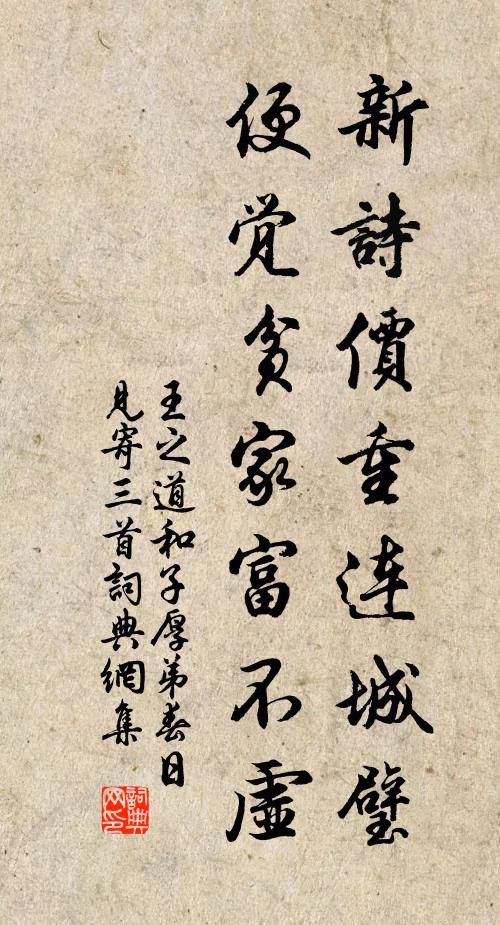 新詩價重連城璧
便覺貧家富不虛
王之道和子厚弟春日
見寄三首詞典網集
詞典
网印